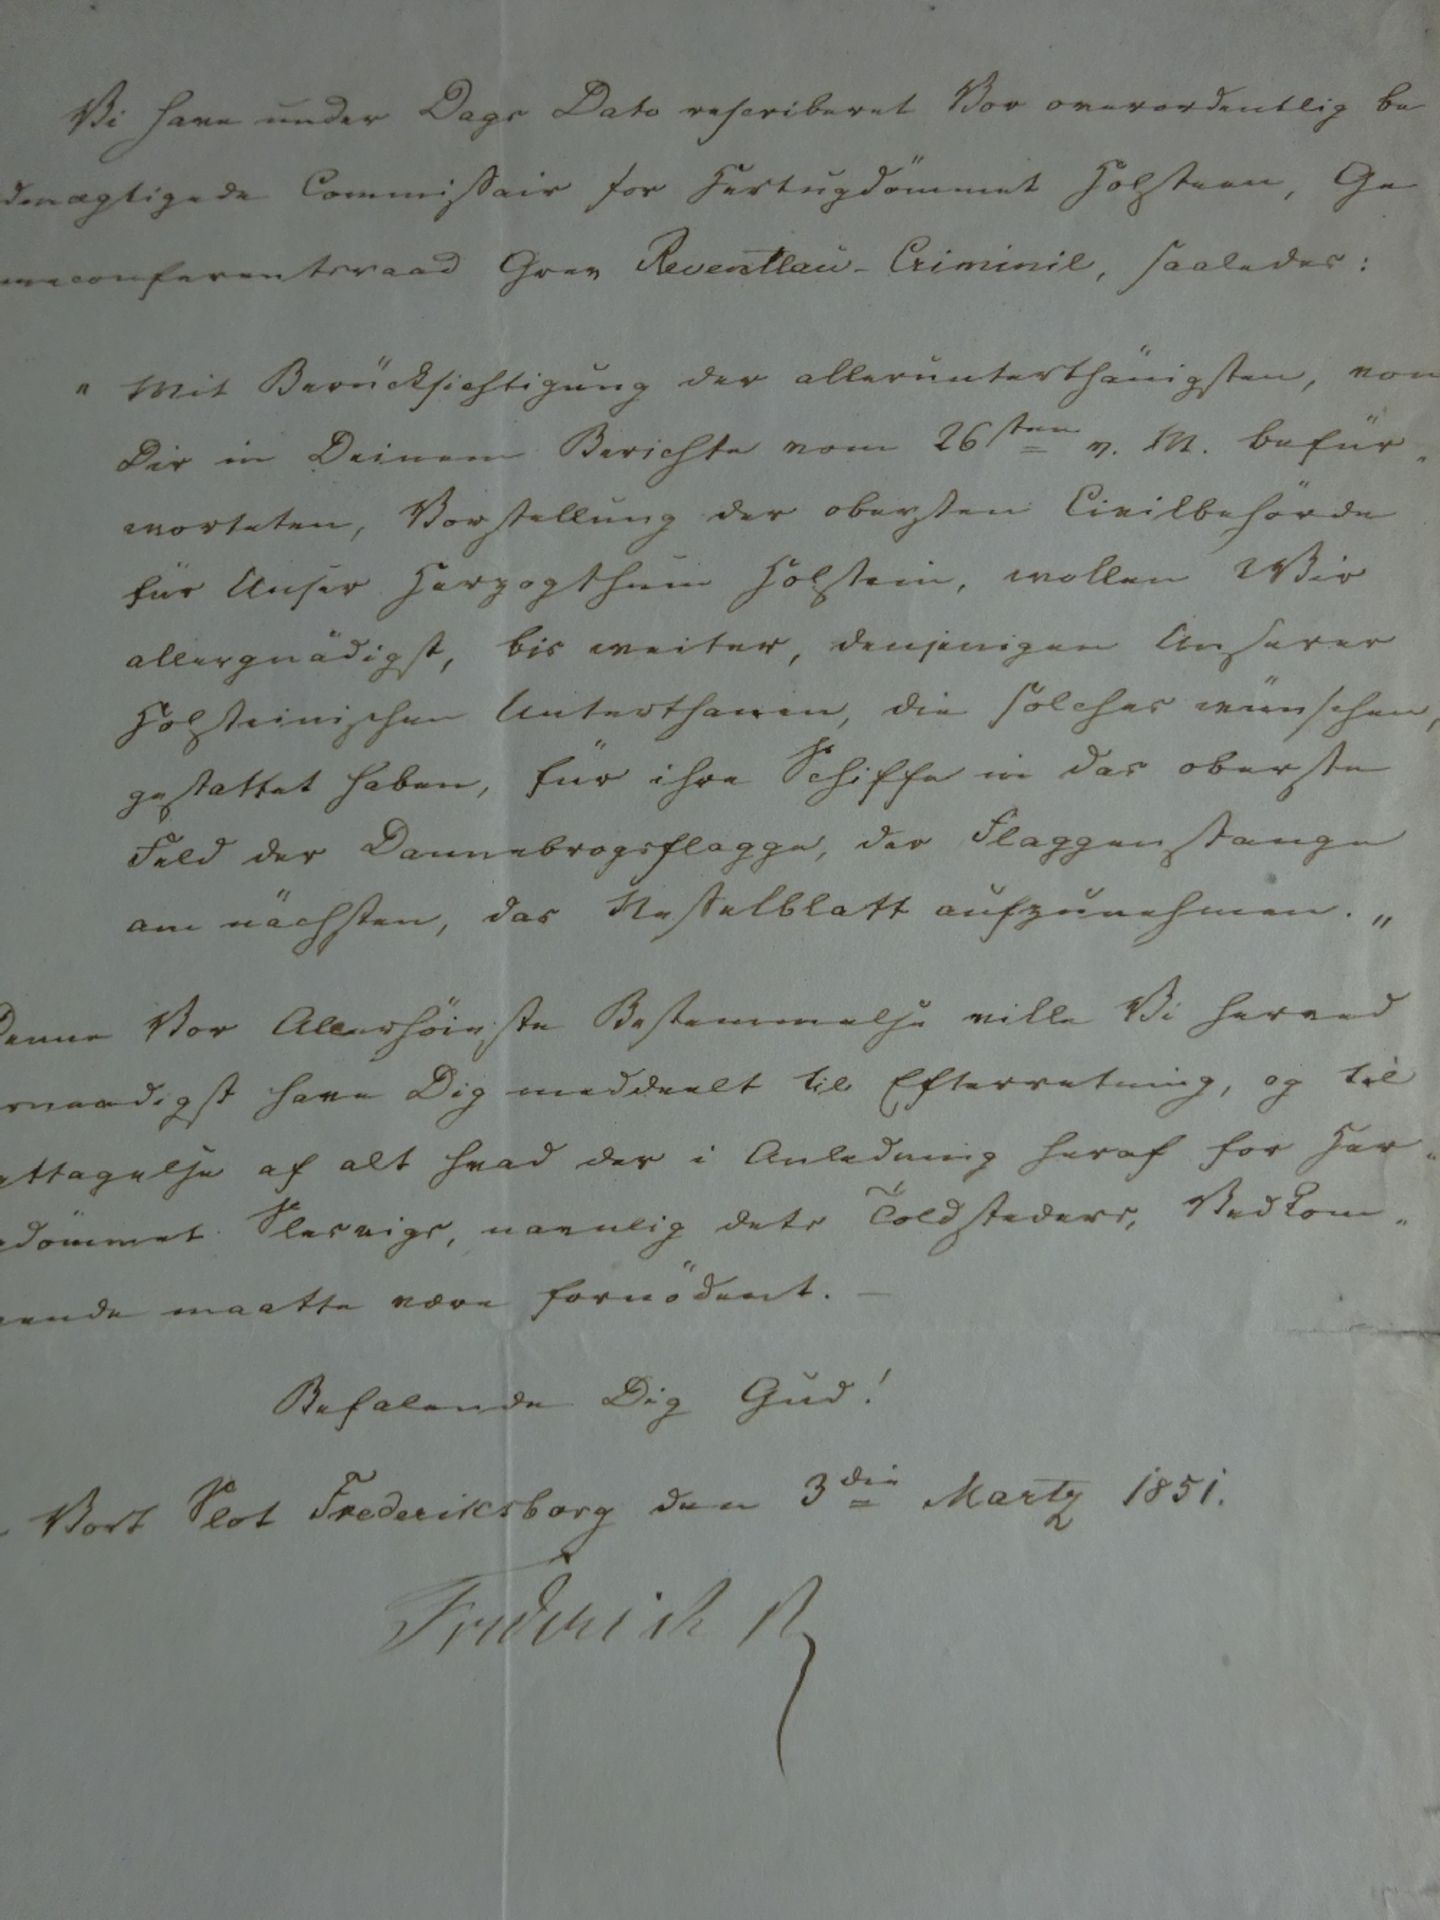 Vi have under Dags Dato rescriberet Vor overordentlig be
dmægtigede Commissair for Hertugdömmet Holsteen, Ge
meconferentsraad Grev Reventlau-Criminil, saaledes:
" Mit Berücksichtigung der allerunterthänigsten, von
Dir in Deinem Berichte vom 26sten v. M. befür-
worteten, Vorstellung der obersten Civilbehörde
für Unser Herzogthum Holstein, wollen Wir
allergnädigst, bis weiter, denjenigen Unserer
Holsteinischen Unterthanen, die solches wünschen,
gestattet haben, für ihre Schiffe in das oberste
Feld der Dannebrogsflagge, der Flaggenstange
am nächsten, das Nesselblatt aufzunehmen. "
Denne Vor Allerhöieste Bestemmelse ville Vi herved
rnaadigst have Dig meddeelt til Efterretning, og til
ttagelse af alt hvad der i Anledning heraf for Her-
dömmet Slesvigs, navnlig dets Toldsteders, Vedkom-
ende maatte være fornödent. —
Befalende Dig Gud!
Vort Slot Frederiksborg den 3die Martz 1851.
Frederik R